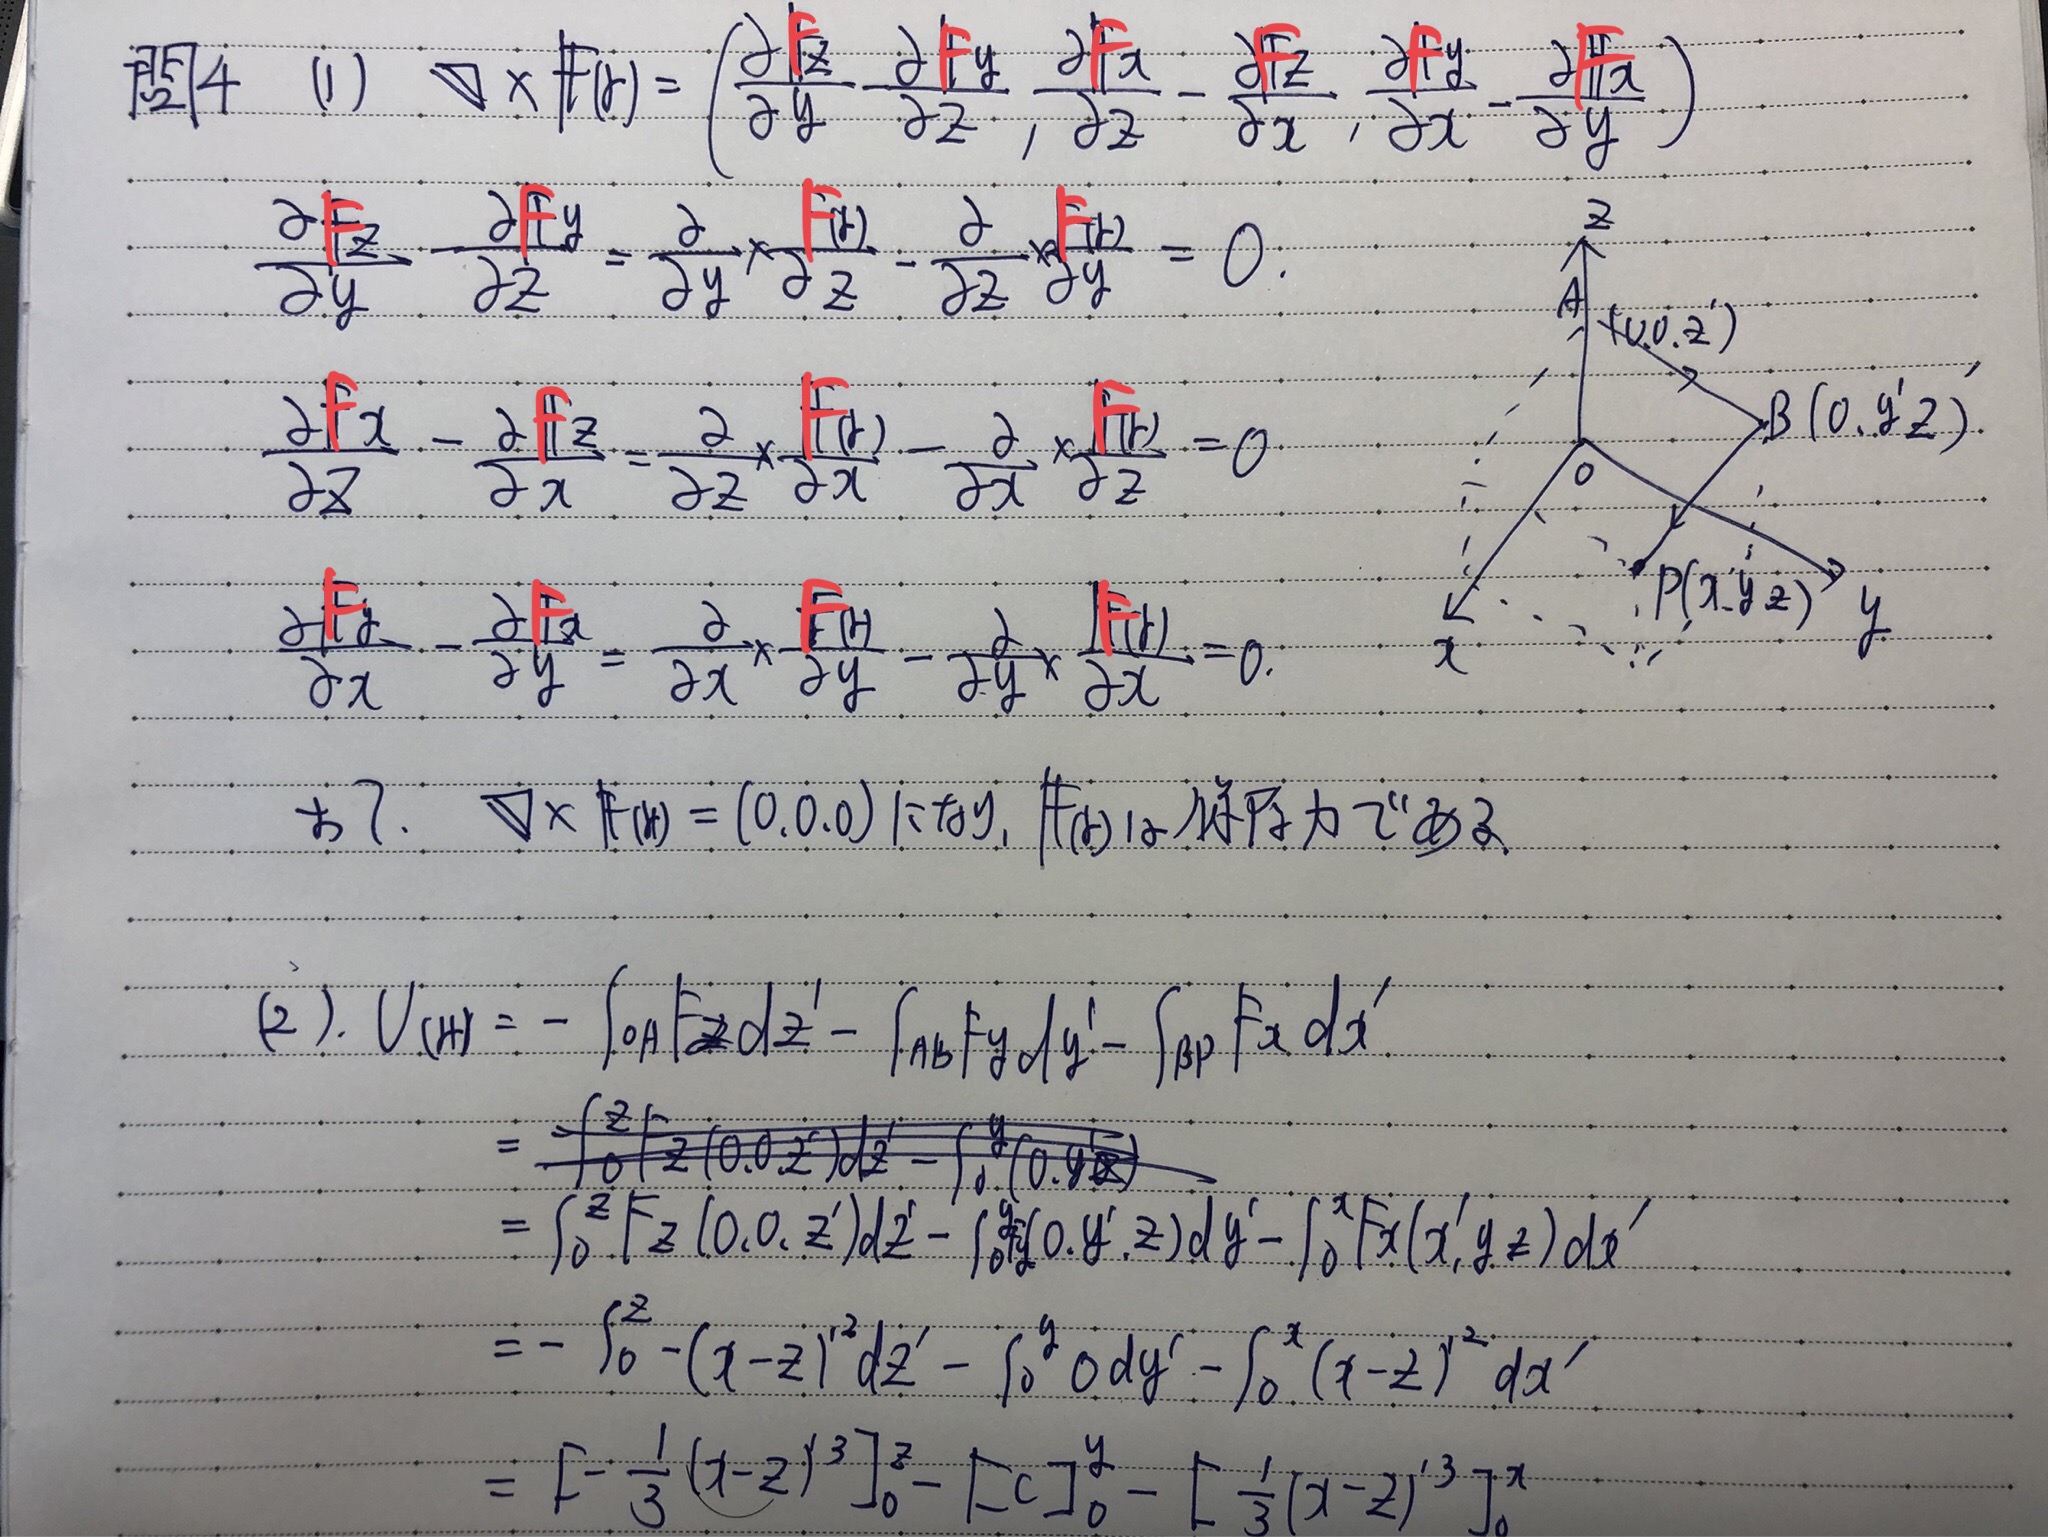 問4 (1) ∇×F(r) = (∂Fz/∂y - ∂Fy/∂z, ∂Fx/∂z - ∂Fz/∂x, ∂Fy/∂x - ∂Fx/∂y)
∂Fz/∂y - ∂Fy/∂z = ∂/∂y × F(r)/∂z - ∂/∂z × F(r)/∂y = 0.
∂Fx/∂z - ∂Fz/∂x = ∂/∂z × F(r)/∂x - ∂/∂x × F(r)/∂z = 0
∂Fy/∂x - ∂Fx/∂y = ∂/∂x × F(r)/∂y - ∂/∂y × F(r)/∂x = 0.
z
A
(0.0.z')
B(0.y'z)
O
P(x'yz)
y
x
よって. ∇×F(r) = (0.0.0)になり, F(r)は保存力である.
(2). U(r) = - ∫OA Fz dz' - ∫AB Fy dy' - ∫BP Fx dx'
= ∫₀^z Fz(0.0.z')dz' - ∫₀^y (0.y'z)
= ∫₀^z Fz(0.0.z')dz' - ∫₀^y Fy(0.y'.z)dy' - ∫₀^x Fx(x',yz)dx'
= - ∫₀^z -(x-z)'²dz' - ∫₀^y 0dy' - ∫₀^x (x-z)'²dx'
= [-1/3(x-z)'³]₀^z - [C]₀^y - [1/3(x-z)'³]₀^x